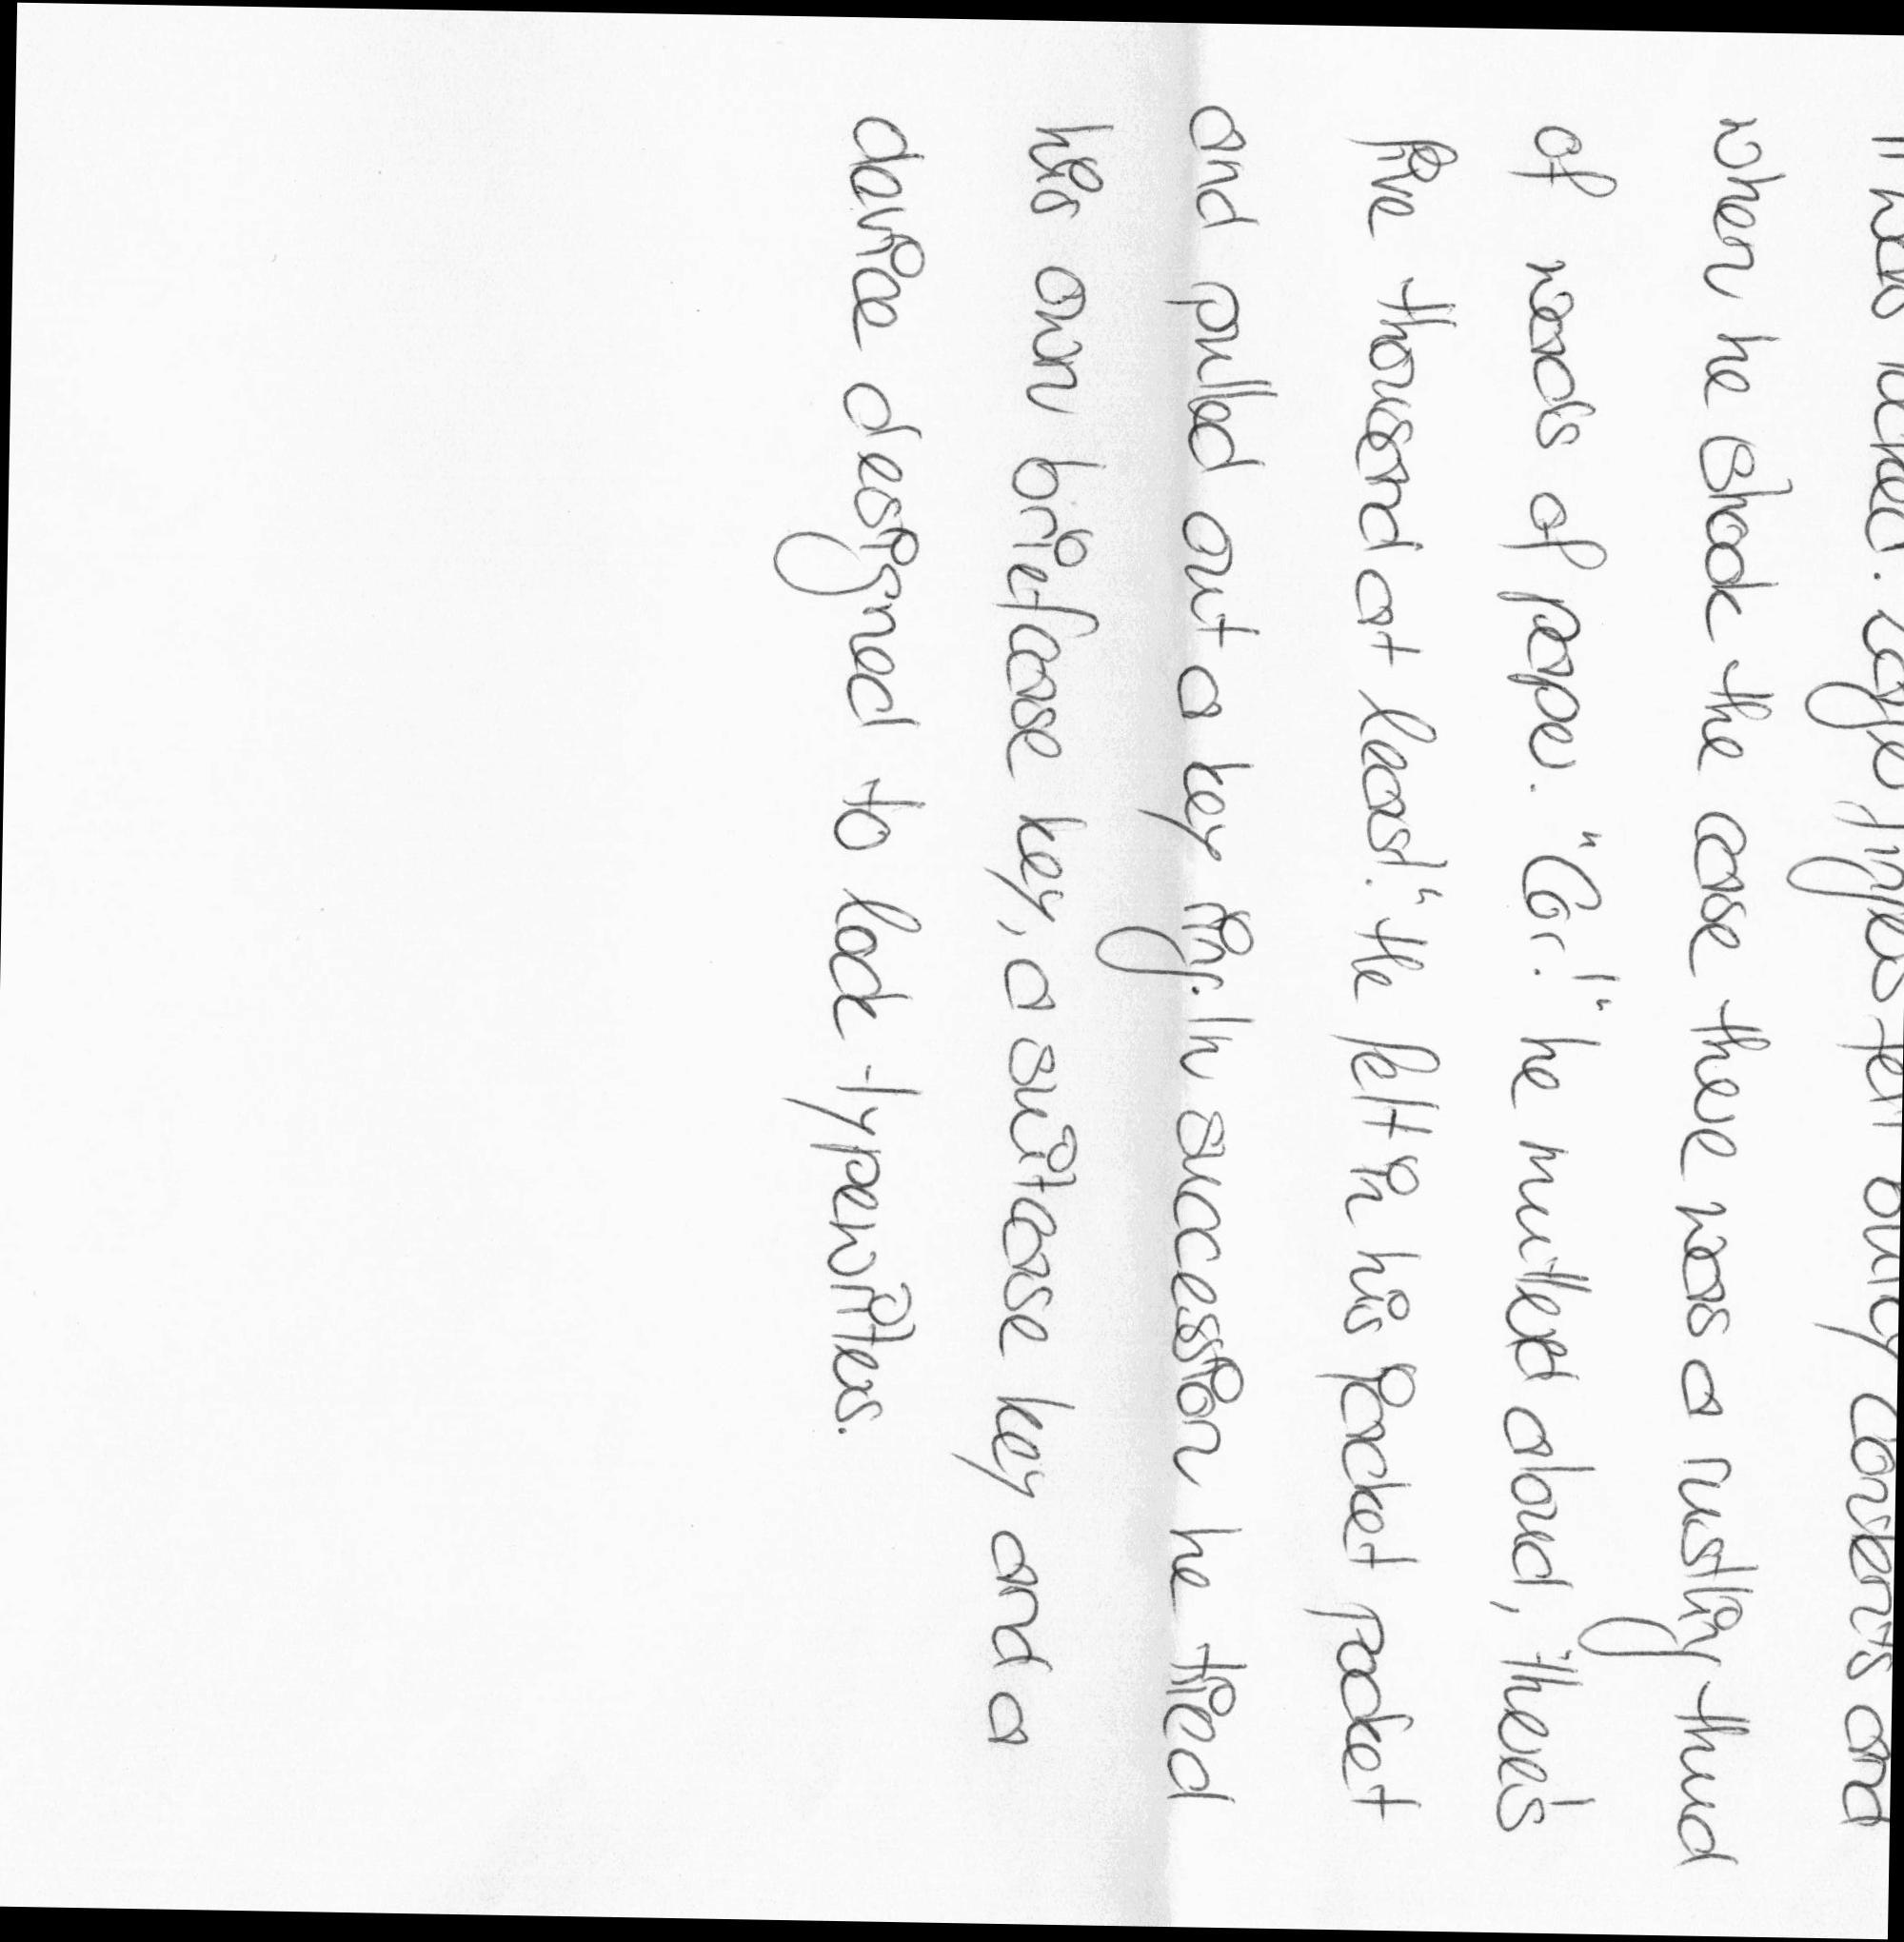 was locked. Eager fingers felt bulky contents and
when he shook the case there was a rustling thud
of wads of paper. "Cor!" he muttered aloud, 'there's
five thousand at least." He felt in his jacket pocket
and pulled out a key ring. In succession he tried
his own briefcase key, a suitcase key and a
device designed to lock typewriters.